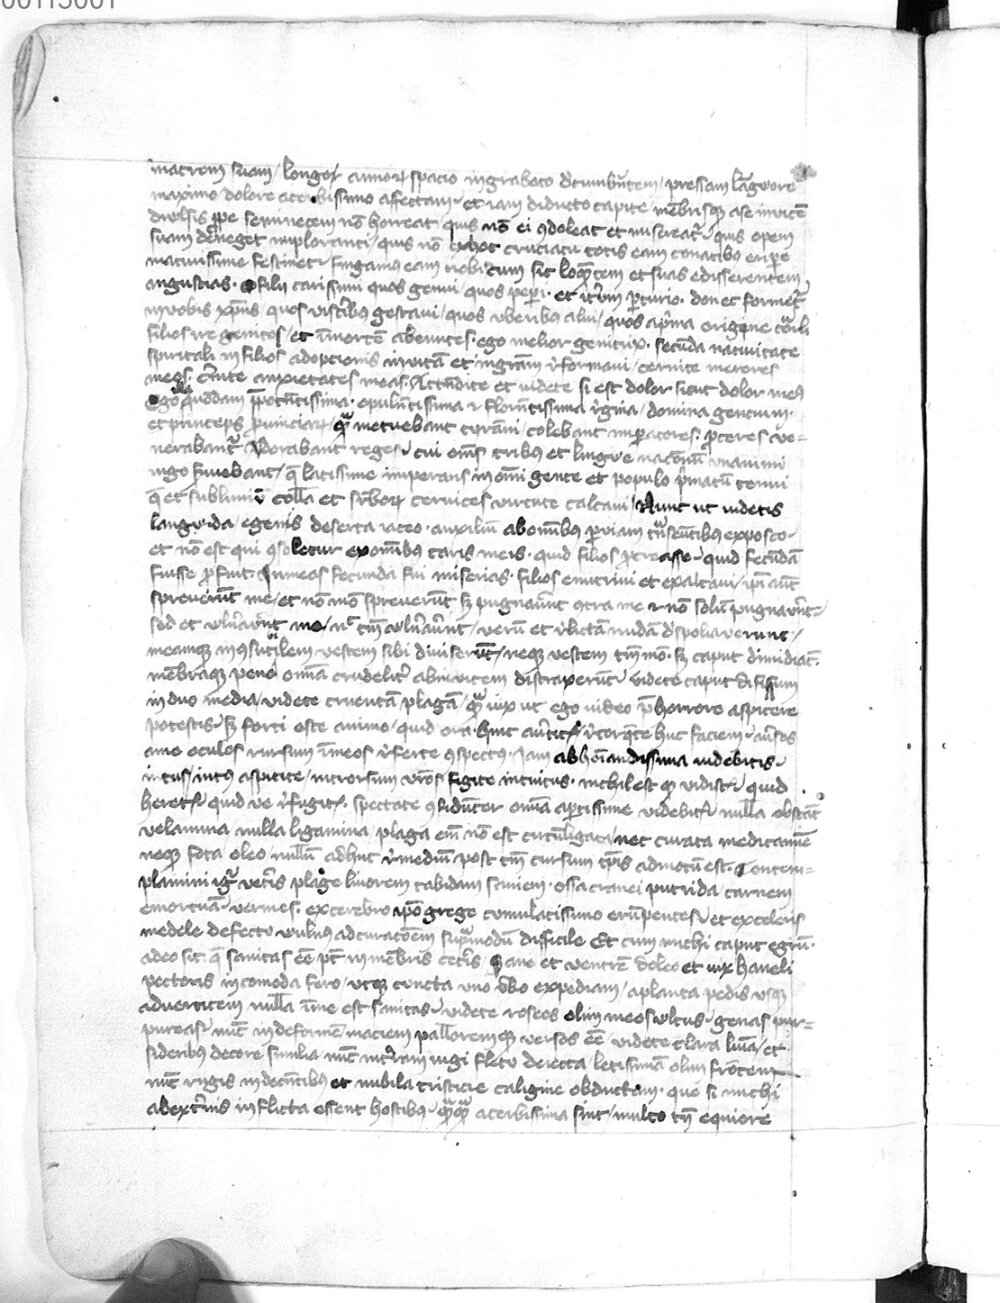 00113001
matrem suam / longo annorum spacio in grabato decumbentem / pressam languore
maximo / dolore acerbissimo affectam / et iam diducto capite / membrisque a se invicem
divulsis prope seminecem non horreat / quis non ei condoleat et misereatur / quis opem
suam deneget imploranti / quis non ex hoc cruciatu totis eam conatibus eripere
maturissime festinet / fingamus eam nobiscum sic loquentem et suas edisserentem
angustias . O filii carissimi quos genui / quos peperi . et iterum parturio . donec formetur
in vobis christus quos visceribus gestavi / quos uberibus alui / quos a prima origine
filios ire genitos / et in mortem abeuntes . ego melior genitrix . secunda nativitate
spiritali in filios adoptionis invitam et in gratiam reformavi / cernite merores
meos . cernite anxietates meas . Attendite et videte si est dolor sicut dolor meus
Ego quondam potentissima . opulentissima et florentissima regina / domina gentium .
et princeps provinciarum / quam metuebant tyranni / colebant imperatores . proceres ve=
nerabantur Adorabant reges / cui omnes tribus et lingue nacionum unanimi
iugo serviebant / que latissime imperans in omni gente et populo primatum tenui
que et sublimium colla et superborum cervices virtute calcavi / Nunc ut videtis
languida / egenis deserta iaceo . auxilium ab omnibus per viam transeuntibus exposco .
et non est qui consoletur ex omnibus caris meis . quid filios procreasse / quid fecundam
fuisse profuit . In meas fecunda fui miserias . filios enutrivi et exaltavi / ipsi autem
spreverunt me / et non modo spreverunt sed pugnaverunt contra me et non solum pugnaverunt
sed et vulneraverunt me / nec tantum vulneraverunt / verum et relictam nudam dispoliaverunt /
meamque inconsutilem vestem sibi diviserunt / neque vestem tantum modo . sed caput dimidiatum .
membraque pene omnia crudeliter ab invicem distraxerunt / videte caput discissum
in duo media / videte cruentam plagam / quam vix ut ego video pre horrore aspicere
potestis / sed forti este animo / quid ora hinc avertitis / retorquete huc faciem / aversos
a me oculos rursum in meos referte conspectus . Iam abhominandissima videbitis
intus / intus aspicite / introrsum vestros figite intuitus . nichil est quod vidistis / quid
heretis / quid ve refugitis . spectate confidenter omnia apertissime videbitis / nulla obstant
velamina nulla ligamina / plaga enim non est circumligata / nec curata medicamine
neque fota oleo / nullum adhuc remedium post tantum cursum temporis admotum est . Contem=
plamini igitur veteris plage livorem tabidam saniem . ossa cranei putrida / carnem
emortuam . vermes . ex cerebro ipso grege cumulatissimo erumpentes / et ex celeris
medele defectu vulnus ad curationem supra modum difficile Et cum michi caput egrum .
adeo sit . que sanitas esse potest in membris ceteris Sane et ventrem doleo et vix haneli
pectoris incomoda fero / utque cuncta uno verbo expediam / a planta pedis usque
ad verticem nulla in me est sanitas . videte roseos olim meos vultus . genas pur=
pureas / nunc in deformem maciem palloremque versos esse videte clara lumina / et
sideribus decore similia nunc in terram iugi fletu deiecta / letissimam olim frontem
nunc rugis indecentibus et nubila tristicie caligine obductam . que si michi
ab externis inflicta essent hostibus / quamquam acerbissima sint / multo tamen equiore